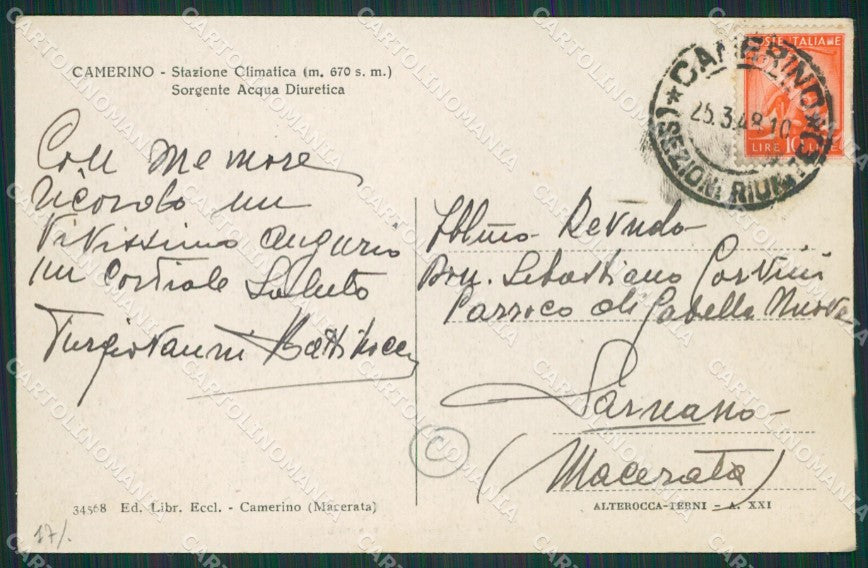 CAMERINO - Stazione Climatica (m. 670 s. m.)
Sorgente Acqua Diuretica
POSTE ITALIANE
LIRE 10 LIRE
CAMERINO
25.3.48.10
SEZIONI RIUNITE
Con memore
ricordo un
vivissimo augurio
un cordiale saluto
Illmo Revndo
Don. Sebastiano Corvini
Parroco di Gabella Nuova
Sarnano
(Macerata)
34568 Ed. Libr. Eccl. - Camerino (Macerata)
ALTEROCCA-TERNI - A. XXI
C
17/.
CARTOLINOMANIA